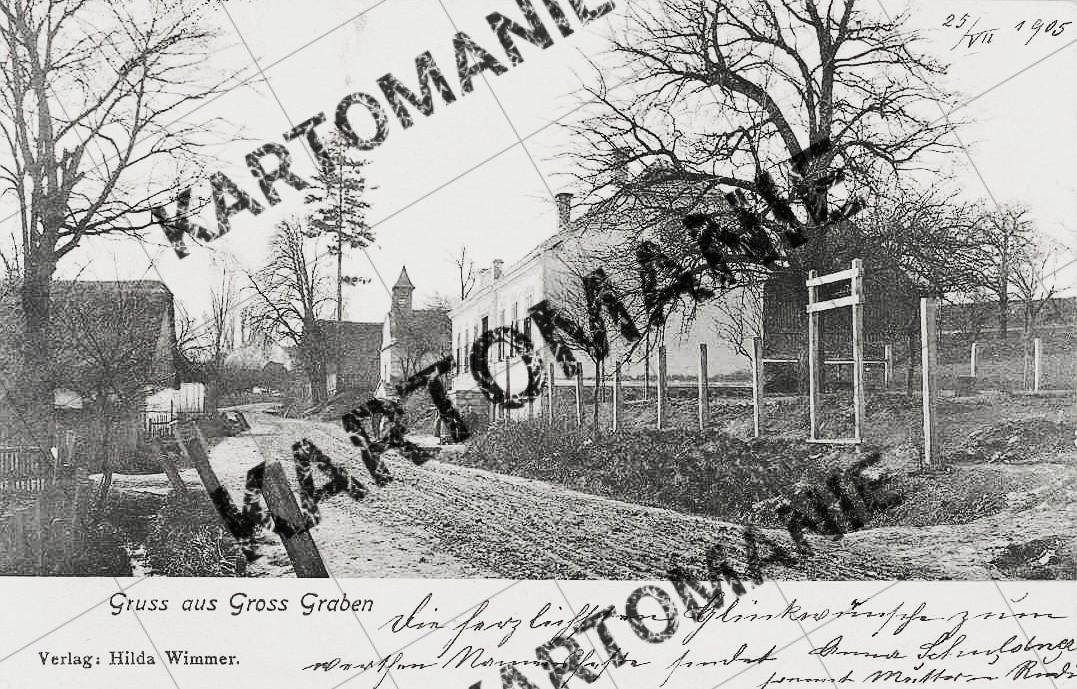 25/VII 1905
KARTOMANIE
KARTOMANIE
KARTOMANIE
KARTOMANIE
Gruss aus Gross Graben
Verlag: Hilda Wimmer.
Die herzlichsten Glückwünsche zum
werthen Namensfeste sendet Anna
sammt Mutter